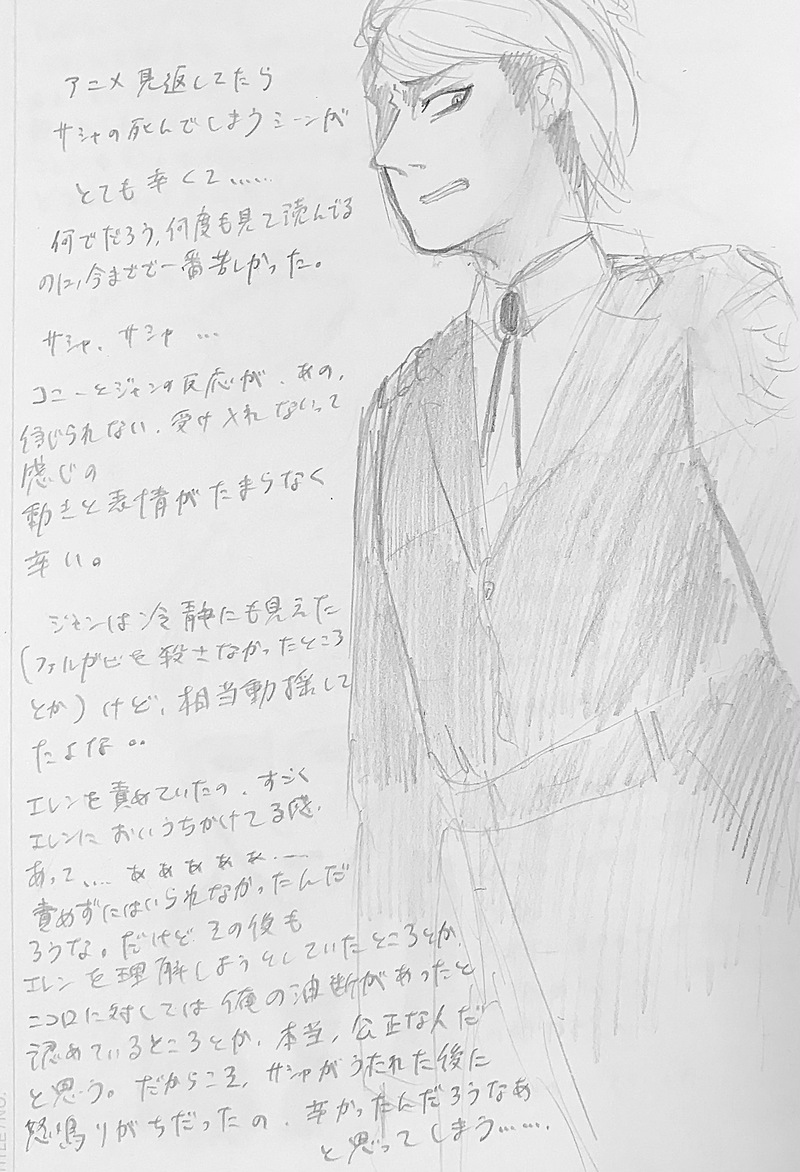 アニメ見返してたら
サシャの死んでしまうシーンが
とても辛くて……
何でだろう,何度も見て読んでる
のに,今までで一番苦しかった。
サシャ、サシャ …
コニーとジャンの反応が、あの,
信じられない、受け入れないって
感じの
動きと表情がたまらなく
辛い。
ジャンは冷静にも見えた
(ファルガビを殺さなかったところ
とか)けど、相当動揺して
たよな。。
エレンを責めていたの、すごく
エレンに おいうちかけてる感,
あって…. ああああぁ….
責めずにはいられなかったんだ
ろうな。だけど その後も
エレンを理解しようとしていたところとか,
ニコロに対しては俺の油断があったと
認めているところとか、本当,公正な人だ
と思う。だからこそ、サシャがうたれた後に
怒鳴りがちだったの、辛かったんだろうなあ
と思ってしまう…….